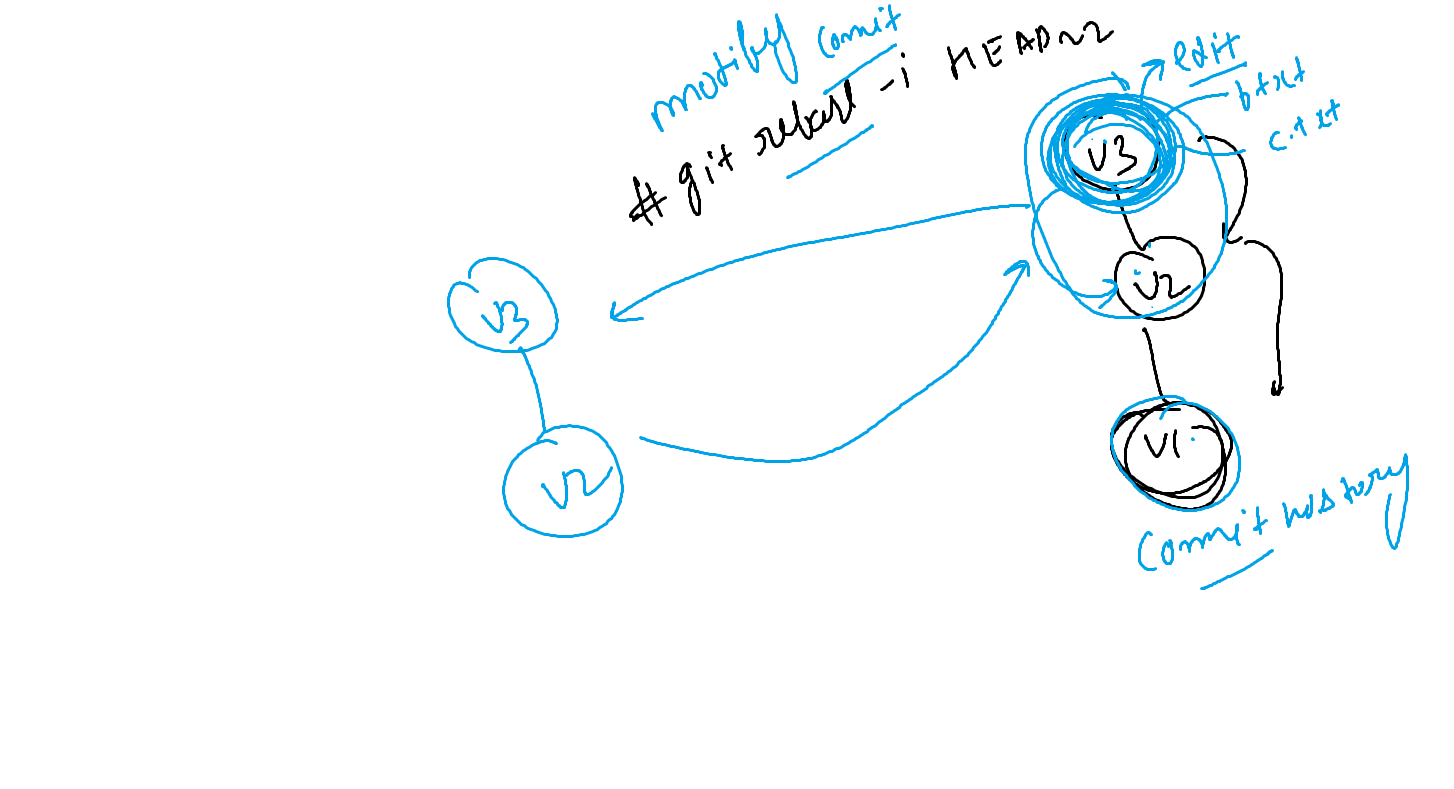 modify commit
# git rebase -i HEAD~2
edit
b.txt
c.txt
v3
v2
v1
v3
v2
Commit history